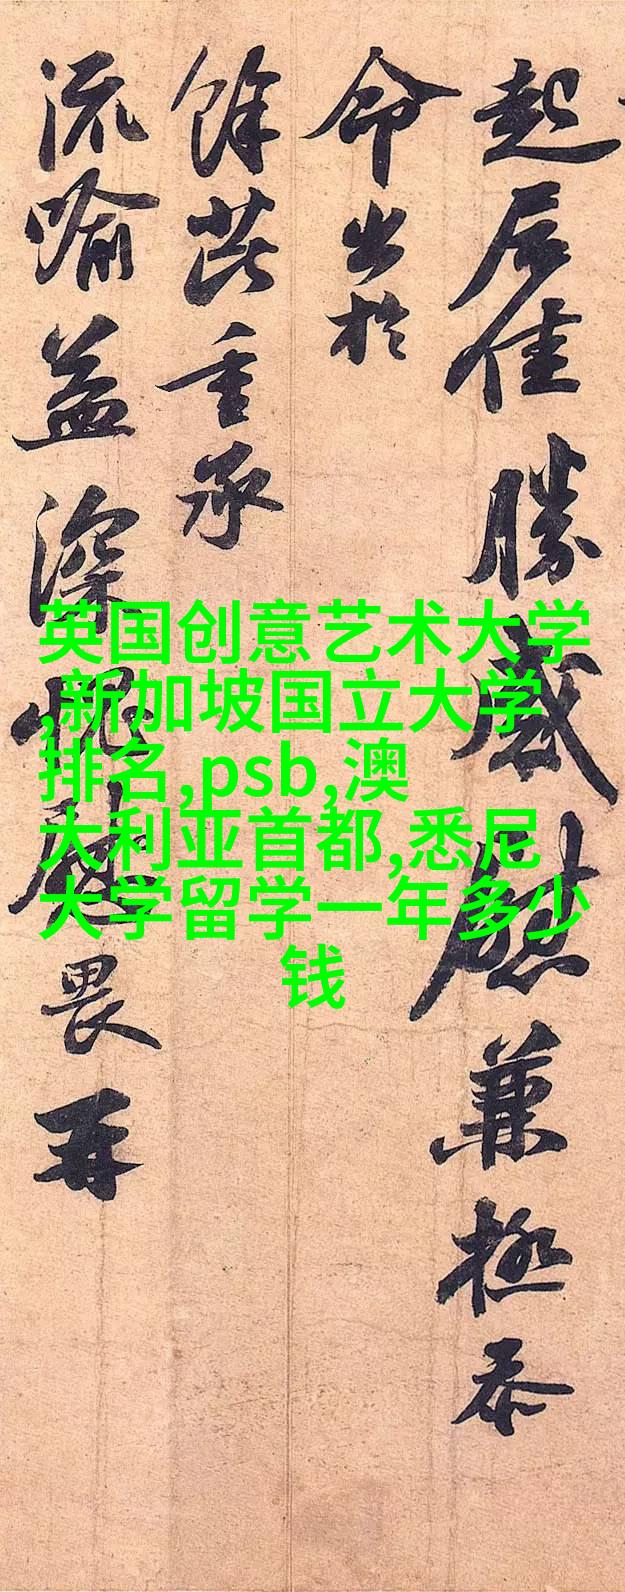 起居佳勝感慰兼極忝
命出於
餘芘重承
流喻益深愧慰畏再
英国创意艺术大学
,新加坡国立大学
排名,psb,澳
大利亚首都,悉尼
大学留学一年多少
钱